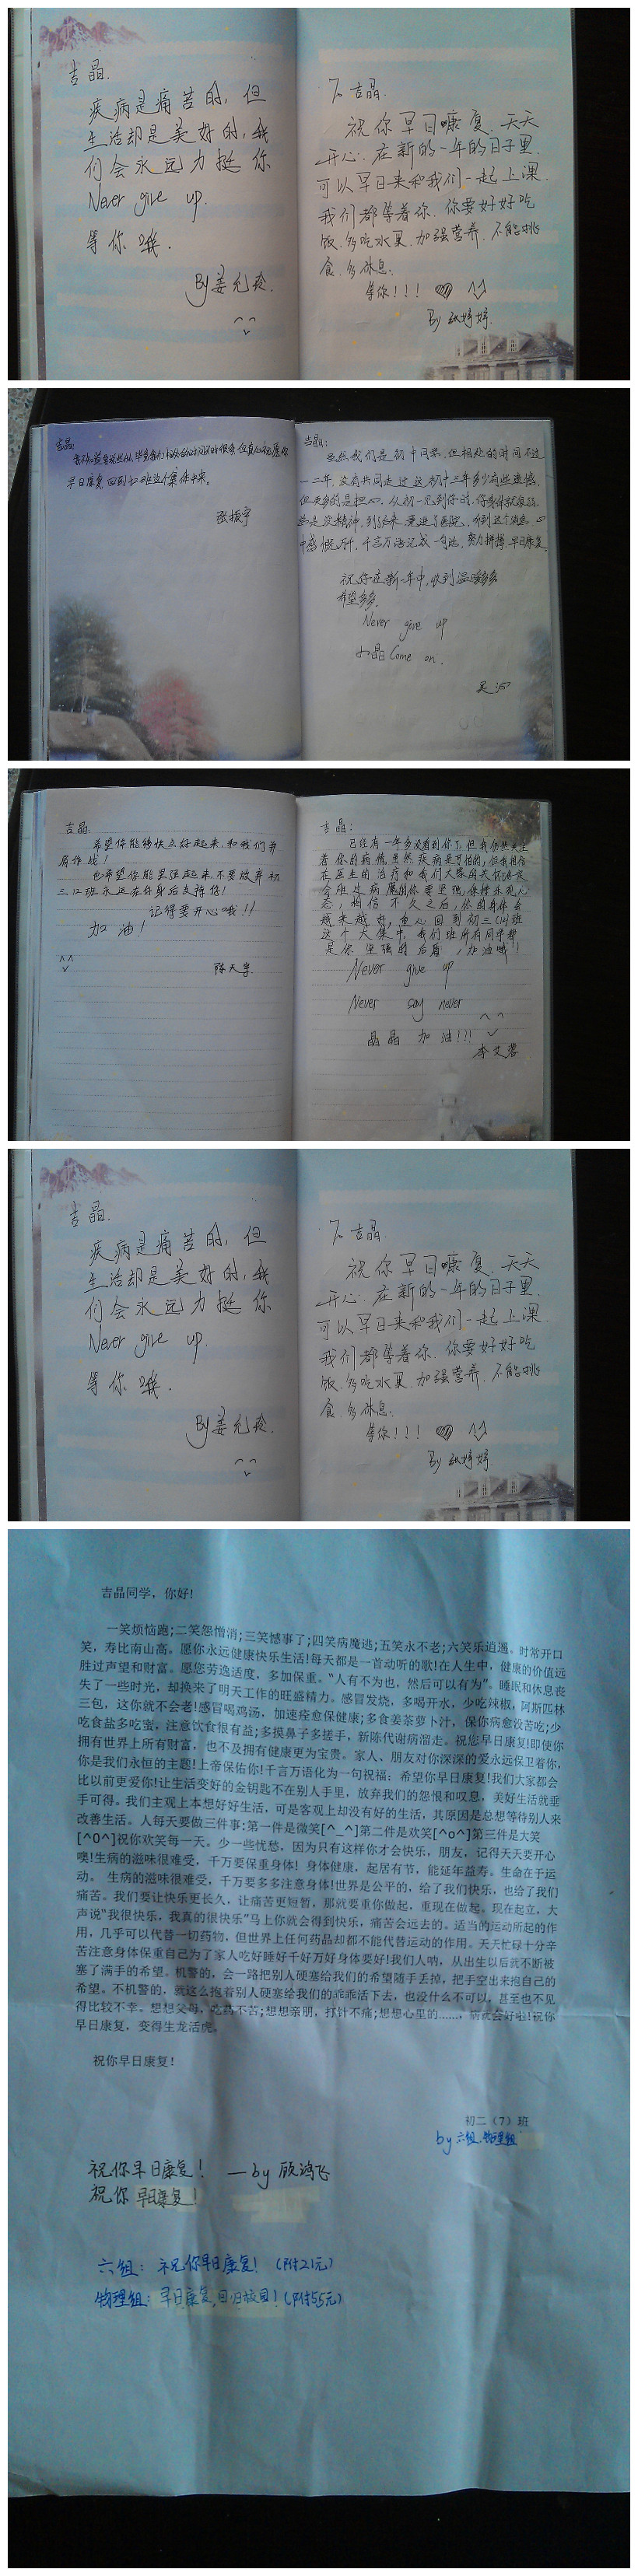 吉晶.
疾病是痛苦的,但
生活却是美好的,我
们会永远力挺你
Never give up.
等你哦.
By 姜允
To 吉晶.
祝你早日康复.天天
开心.在新的一年的日子里.
可以早日来和我们一起上课.
我们都等着你.你要好好吃
饭.多吃水果.加强营养.不能挑
食.多休息.
等你!!!
By 张婷婷.
吉晶:
早日康复,回到
张振宇
吉晶:
虽然我们是初中同学,但相处的时间不过
一二年,没有共同走过这初中三年多少有些遗憾,
但更多的是担心.从初一见到你时,你
中感慨万千,千言万语汇成一句话,努力拼搏,早日康复.
祝你在新一年中,收到温暖多多
希望多多.
Never give up
小晶 Come on.
吴
吉晶.
希望你能够快点好起来,和我们并
肩作战!
也希望你能坚强起来,不要放弃.初
三.12班永远在你身后支持你!
记得要开心哦!!
加油!
陈天宇
吉晶:
已经有一年多没看到你了,但我们
着你的病情,虽然疾病是可怕的,但我相信
在医生的治疗和我们大家的关怀
会胜过病魔的你要坚强,保持乐观心
态,相信不久之后,你的身体会
越来越好,重回到初三(12)班
这个大集中,我们班所有同学都
是你坚强的后盾,加油哦!
Never give up
Never say never
晶晶 加油!!!
李文
吉晶.
疾病是痛苦的,但
生活却是美好的,我
们会永远力挺你
Never give up.
等你哦.
By 姜允
To 吉晶.
祝你早日康复.天天
开心.在新的一年的日子里.
可以早日来和我们一起上课.
我们都等着你.你要好好吃
饭.多吃水果.加强营养.不能挑
食.多休息.
等你!!!
By 张婷婷.
吉晶同学,你好!
一笑烦恼跑;二笑怨憎消;三笑憾事了;四笑病魔逃;五笑永不老;六笑乐逍遥。时常开口
笑,寿比南山高。愿你永远健康快乐生活!每天都是一首动听的歌!在人生中,健康的价值远
胜过声望和财富。愿您劳逸适度,多加保重。“人有不为也,然后可以有为”。睡眠和休息丧
失了一些时光,却换来了明天工作的旺盛精力。感冒发烧,多喝开水,少吃辣椒,阿斯匹林
三包,这你就不会老!感冒喝鸡汤,加速痊愈保健康;多食姜茶萝卜汁,保你病愈没苦吃;少
吃食盐多吃蜜,注意饮食很有益;多摸鼻子多搓手,新陈代谢病溜走。祝您早日康复!即使你
拥有世界上所有财富,也不及拥有健康更为宝贵。家人、朋友对你深深的爱永远保卫着你,
你是我们永恒的主题!上帝保佑你!千言万语化为一句祝福:希望你早日康复!我们大家都会
比以前更爱你!让生活变好的金钥匙不在别人手里,放弃我们的怨恨和叹息,美好生活就垂
手可得。我们主观上本想好好生活,可是客观上却没有好的生活,其原因是总想等待别人来
改善生活。人每天要做三件事:第一件是微笑[^_^]第二件是欢笑[^o^]第三件是大笑
[^O^]祝你欢笑每一天。少一些忧愁,因为只有这样你才会快乐,朋友,记得天天要开心
噢!生病的滋味很难受,千万要保重身体!身体健康,起居有节,能延年益寿。生命在于运
动。 生病的滋味很难受,千万要多多注意身体!世界是公平的,给了我们快乐,也给了我们
痛苦。我们要让快乐更长久,让痛苦更短暂,那就要重你做起,重现在做起。现在起立,大
声说“我很快乐,我真的很快乐”马上你就会得到快乐,痛苦会远去的。适当的运动所起的作
用,几乎可以代替一切药物,但世界上任何药品却都不能代替运动的作用。天天忙碌十分辛
苦注意身体保重自己为了家人吃好睡好千好万好身体要好!我们人呐,从出生以后就不断被
塞了满手的希望。机警的,会一路把别人硬塞给我们的希望随手丢掉,把手空出来抱自己的
希望。不机警的,就这么抱着别人硬塞给我们的乖乖活下去,也没什么不可以,甚至也不见
得比较不幸。想想父母,吃药不苦;想想亲朋,打针不痛;想想心里的……,病就会好啦!祝你
早日康复,变得生龙活虎。
祝你早日康复!
初二(7)班
by 六组.物理组
祝你早日康复! —by 欣鸿飞
祝你 早日康复!
六组: 祝你早日康复!(附21元)
物理组: 早日康复,回归校园!(附55元)